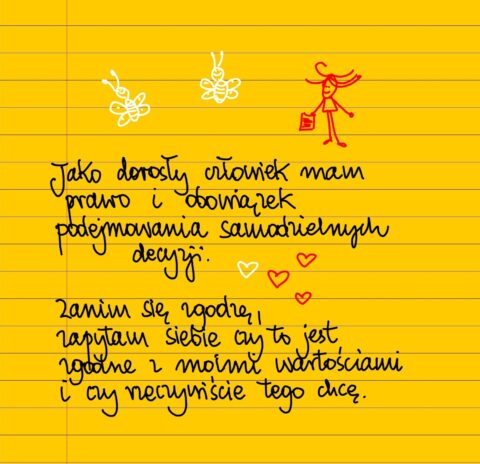 Jako dorosły człowiek mam
prawo i obowiązek
podejmowania samodzielnych
decyzji.
Zanim się zgodzę,
zapytam siebie czy to jest
zgodne z moimi wartościami
i czy rzeczywiście tego chcę.